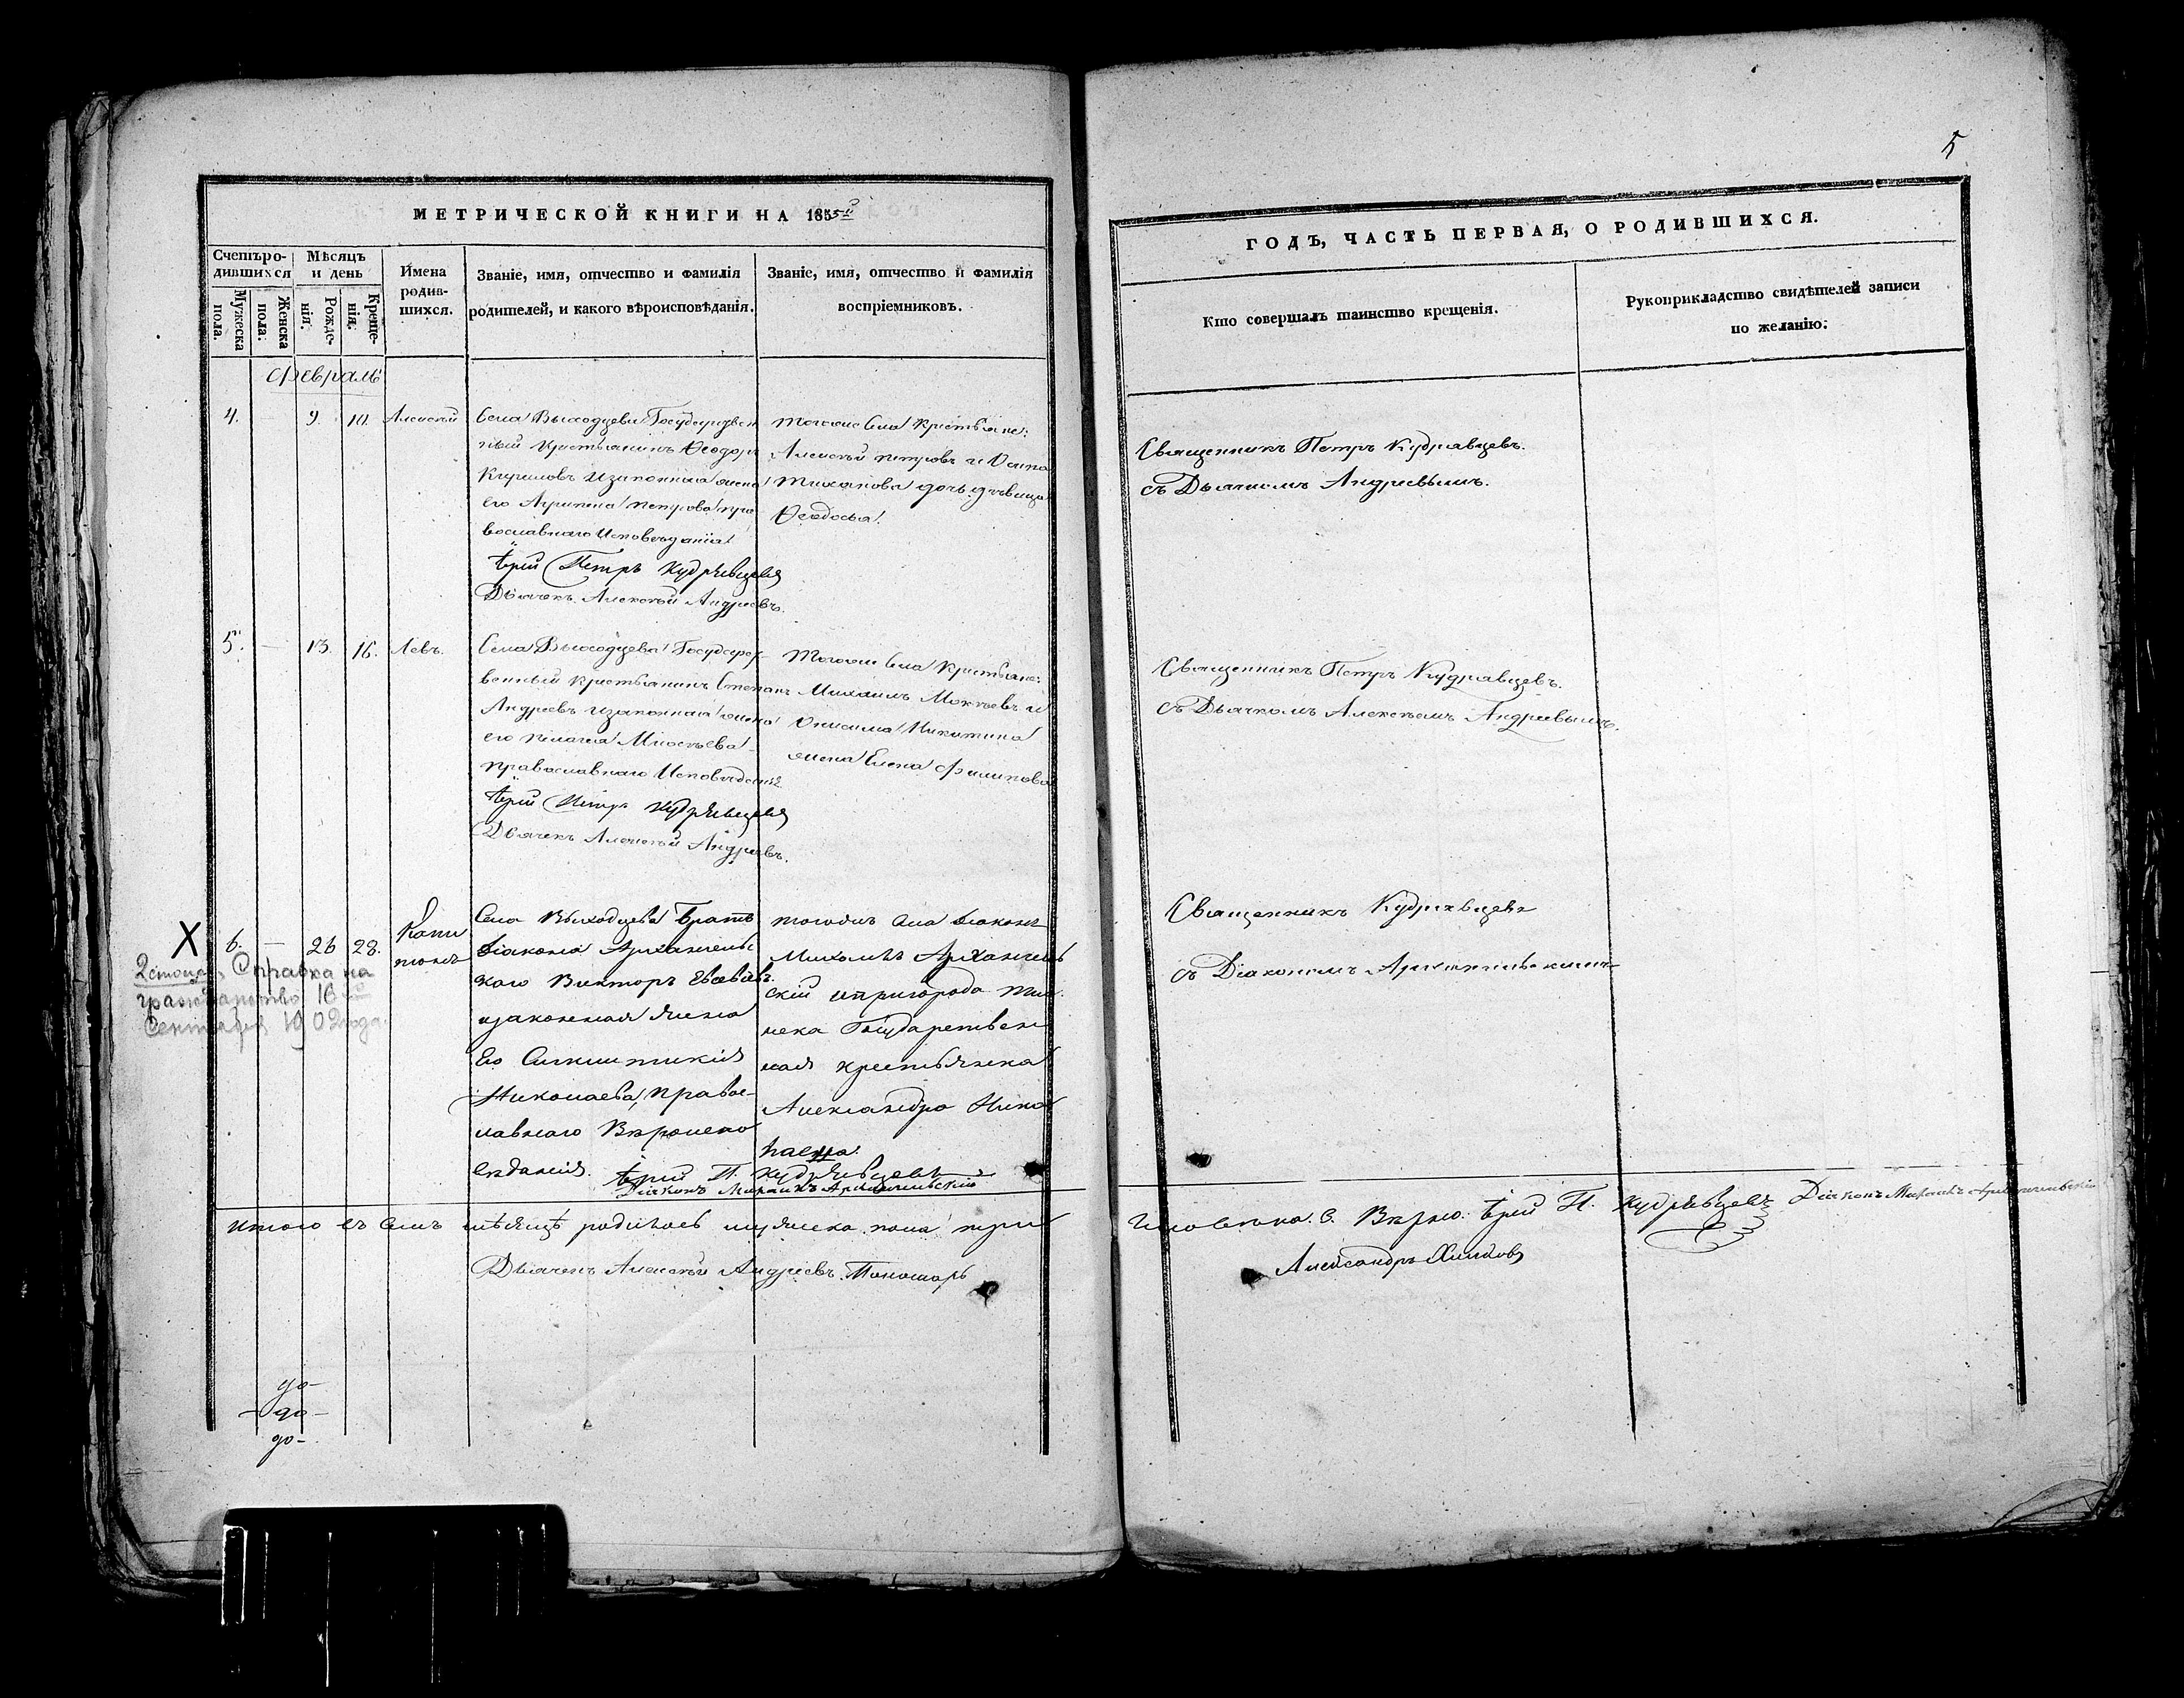 5
МЕТРИЧЕСКОЙ КНИГИ НА 1855й
ГОДЪ, ЧАСТЬ ПЕРВАЯ, О РОДИВШИХСЯ.
Счетъ ро-
дившихся
Мужеска
пола.
Женска
пола.
Мѣсяцъ
и день
Рожде-
нія.
Креще-
нія.
Имена
родив-
шихся.
Званіе, имя, отчество и фамилія
родителей, и какого вѣроисповѣданія.
Званіе, имя, отчество и фамилія
воспріемниковъ.
Кто совершалъ таинство крещенія.
Рукоприкладство свидѣтелей записи
по желанію.
Февраль
4. — 9. 10. Алексѣй
Села Выходцева Государствен
ный Крестьянинъ Ѳеодоръ
Кириловъ изаконная жена
его Агрипена Петрова пра
вославнаго Исповѣданія
Іерей Петръ Кудрявцевъ
Дьячекъ Алексѣй Андреевъ.
Тогоже Села Крестьяне:
Алексѣй Петровъ и Осипа
Тихонова дочь дѣвица
Ѳеодосья.
Священникъ Петръ Кудрявцевъ.
съ Дьячкомъ Андреевымъ.
5. — 13. 16. Левъ.
Села Выходцева Государс
венный Крестьянинъ Степанъ
Андреевъ изаконная жена
его Пелагея
Православнаго Исповѣданія
Іерей Петръ Кудрявцевъ
Дьячекъ Алексѣй Андреевъ.
Тогоже Села Крестьяне:
Михаилъ Мокѣевъ и
Онисима Никитина
жена Елена Филипова
Священникъ Петръ Кудрявцевъ.
съ Дьячкомъ Алексѣемъ Андреевымъ.
X
6. — 26 28.
Капи
тонъ
Справка на
гражданство 16го
Сентября 1902 года.
Села Выходцева Братъ
Діакона Архангельс
каго Викторъ Евсеевъ.
изаконная жена
Его Синклитикія
Николаева, Правос-
лавнаго Вѣроиспо
вѣданія. Іерей П. Кудрявцевъ
Діаконъ Михаилъ Архангельскій
Тогожъ Села Діаконъ
Михаилъ Архангель
скій ипригорода Ти
нска Государствен
ная крестьянка
Александра Нико
лаева.
Священникъ Кудрявцевъ
съ Діакономъ Архангельскимъ
Итого въ Семъ мѣсяцѣ родилось мужеска пола три
человѣка. 3. Вѣрно: Іерей П. Кудрявцевъ Діаконъ Михаилъ Архангельскій
Дьячекъ Алексѣй Андреевъ. Пономарь
Александръ Климовъ
до-
-до-
до-